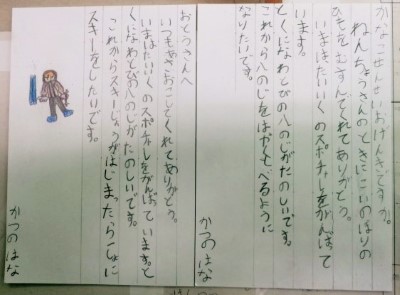 かなこせんせいおげんきですか。
ねんちょうさんのときにこいのぼりの
ひもをむすんでくれてありがとう。
いまはたいいくのスポチャレをがんばって
います。
とくになわとびの八のじがたのしいです。
これから八のじをはやくとべるように
なりたいです。
かつのはな
おとうさんへ
いつもあさおこしてくれてありがとう。
いまはたいいくのスポチャレをがんばっています。と
くになわとびの八のじがたのしいです。
これからスキーじょうがはじまったらいっしょに
スキーをしたいです。
かつのはな